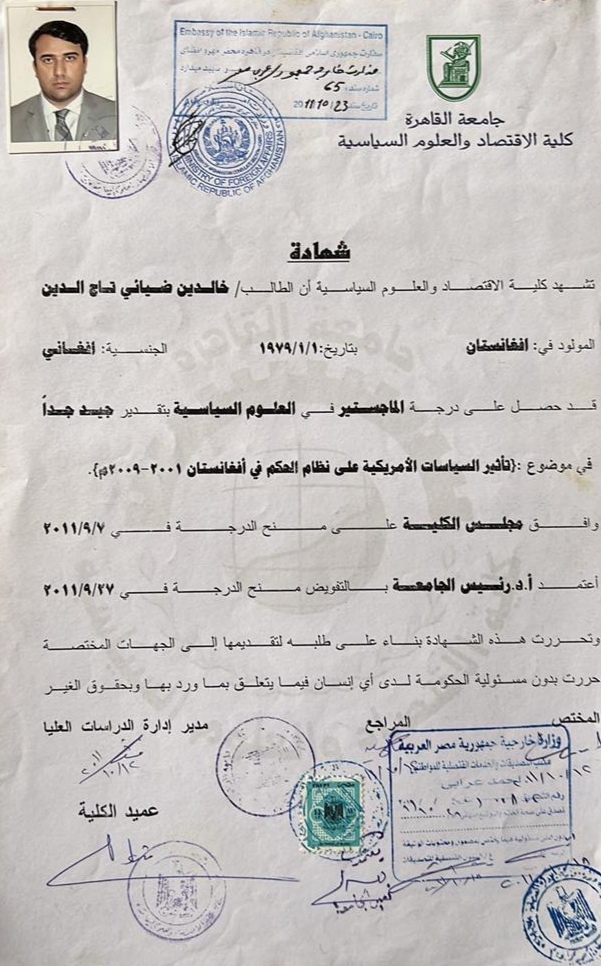 Embassy of the Islamic Republic of Afghanistan - Cairo
65
2011/10/23
MINISTRY OF FOREIGN AFFAIRS
ISLAMIC REPUBLIC OF AFGHANISTAN
جامعة القاهرة
كلية الاقتصاد والعلوم السياسية
شهادة
تشهد كلية الاقتصاد والعلوم السياسية أن الطالب/ خالدين ضيائي تاج الدين
المولود في: افغانستان بتاريخ: ١٩٧٩/١/١ الجنسية: افغاني
قد حصل على درجة الماجستير في العلوم السياسية بتقدير جيد جداً
في موضوع :{تأثير السياسات الأمريكية على نظام الحكم في أفغانستان ٢٠٠١-٢٠٠٩م}.
وافق مجلس الكلية على منح الدرجة في ٢٠١١/٩/٧
أعتمد أ.د.رئيس الجامعة بالتفويض منح الدرجة في ٢٠١١/٩/٢٧
وتحررت هذه الشهادة بناء على طلبه لتقديمها إلى الجهات المختصة
حررت بدون مسئولية الحكومة لدى أي إنسان فيما يتعلق بما ورد بها وبحقوق الغير
المختص المراجع مدير إدارة الدراسات العليا
عميد الكلية
وزارة خارجية جمهورية مصر العربية